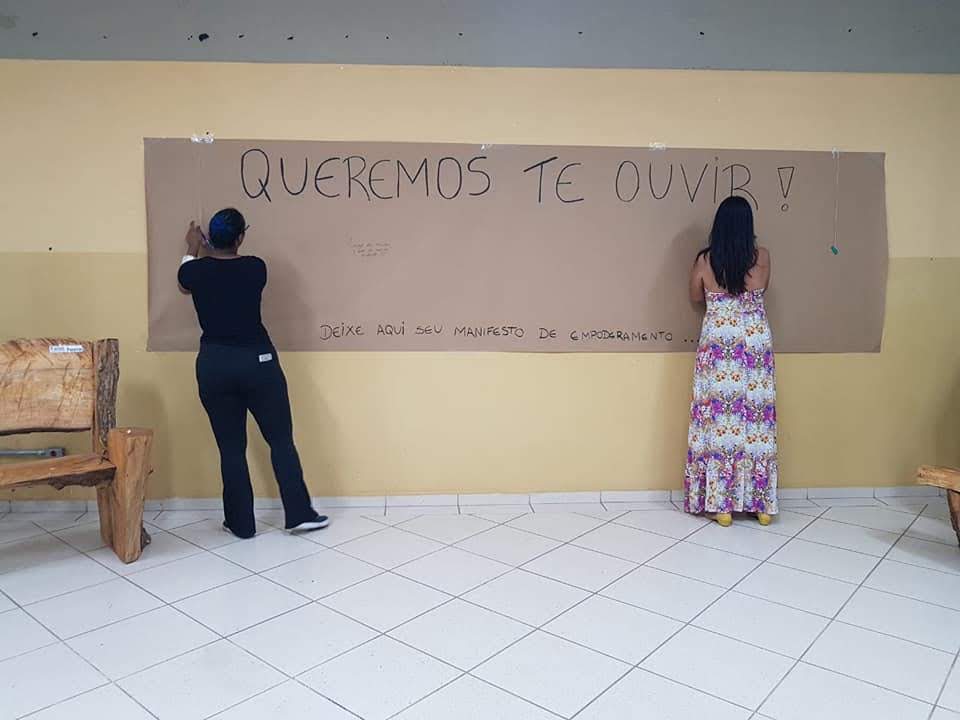 QUEREMOS TE OUVIR!
DEIXE AQUI SEU MANIFESTO DE EMPODERAMENTO ...